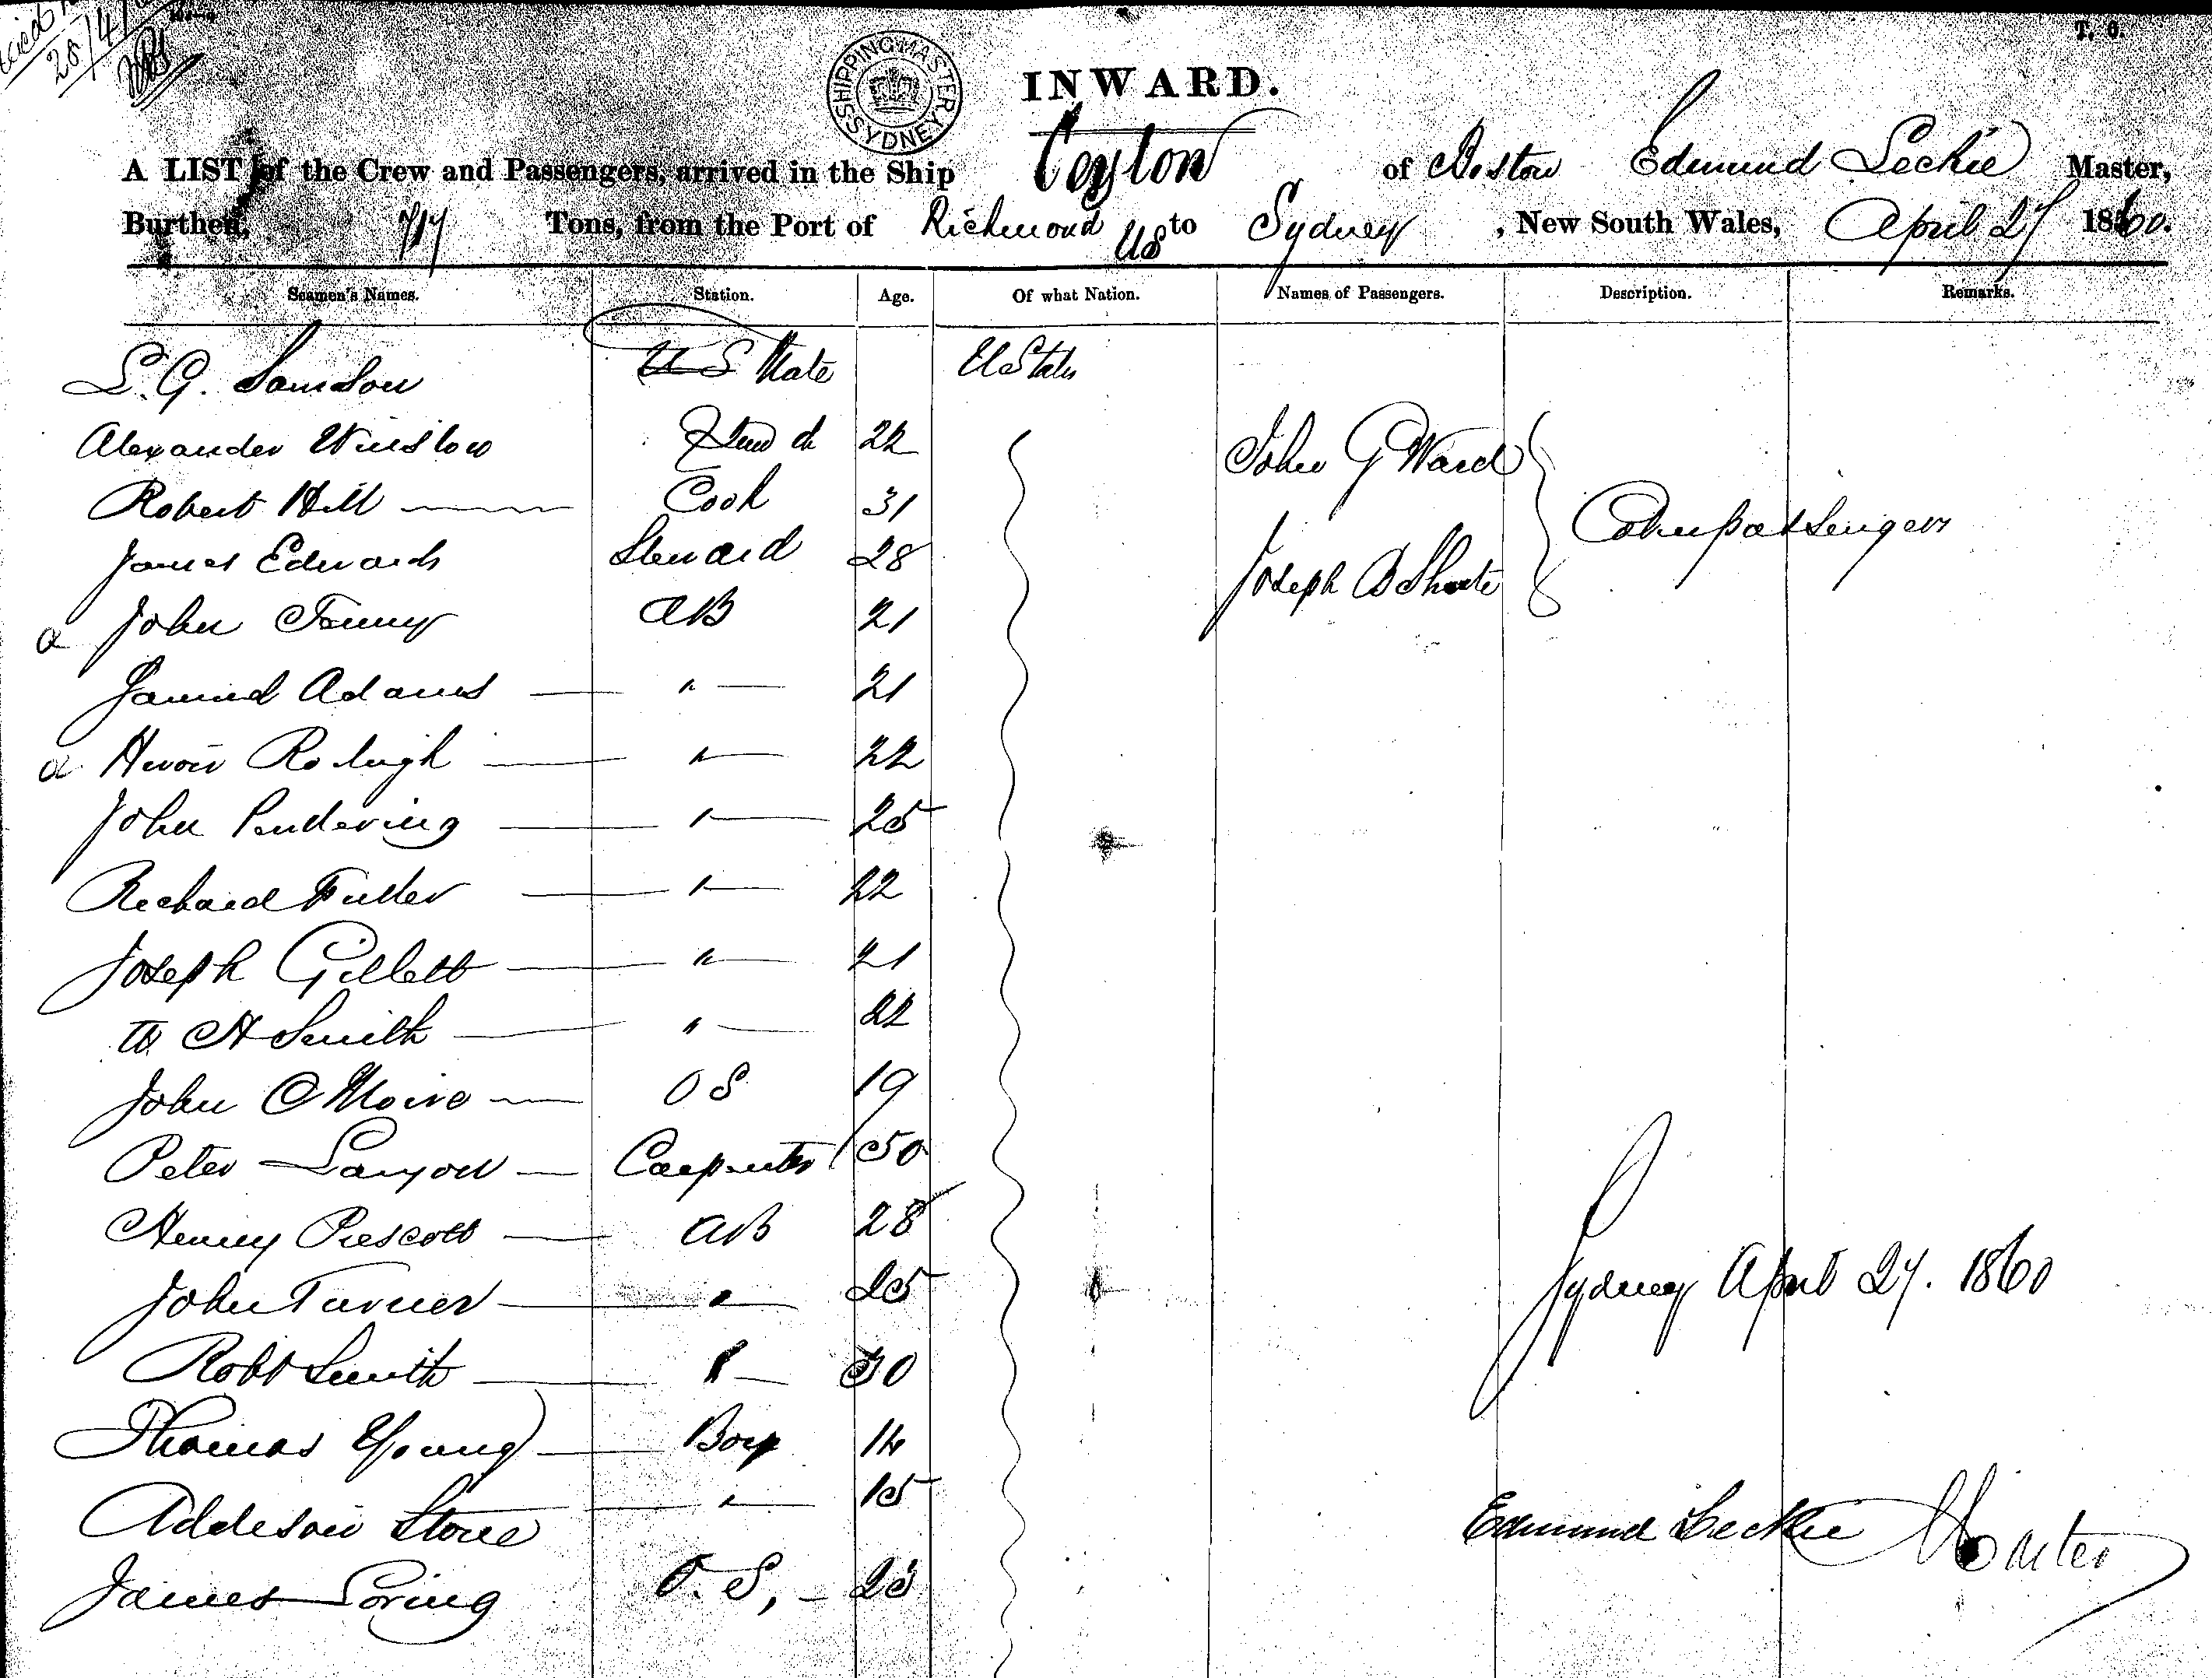 28/4/
T. O.
SHIPPING MASTER SYDNEY
INWARD.
A LIST of the Crew and Passengers, arrived in the Ship Ceylon of Boston Edmund Leckie Master,
Burthen, 717 Tons, from the Port of Richmond US to Sydney, New South Wales, April 27 1860.
Seamen's Names. Station. Age. Of what Nation. Names of Passengers. Description. Remarks.
L. G. Samson U S Mate U States
Alexander Winslow 2nd do 22 John G Ward
Robert Hill Cook 31 Cabin passengers
James Edwards Steward 28 Joseph B
a John AB 21
Adams " 21
a Raleigh " 22
John " 25
Richard Fuller " 22
Joseph Gillett " 21
W H Smith " 22
John O S 19
Peter Lanyon Carpenter 50
Henry Prescott AB 28
John Turner " 25 Sydney April 27. 1860
Robt Smith " 30
Thomas Young Boy 14
Addison Stone " 15 Edmund Leckie Master
James Loring O. S,